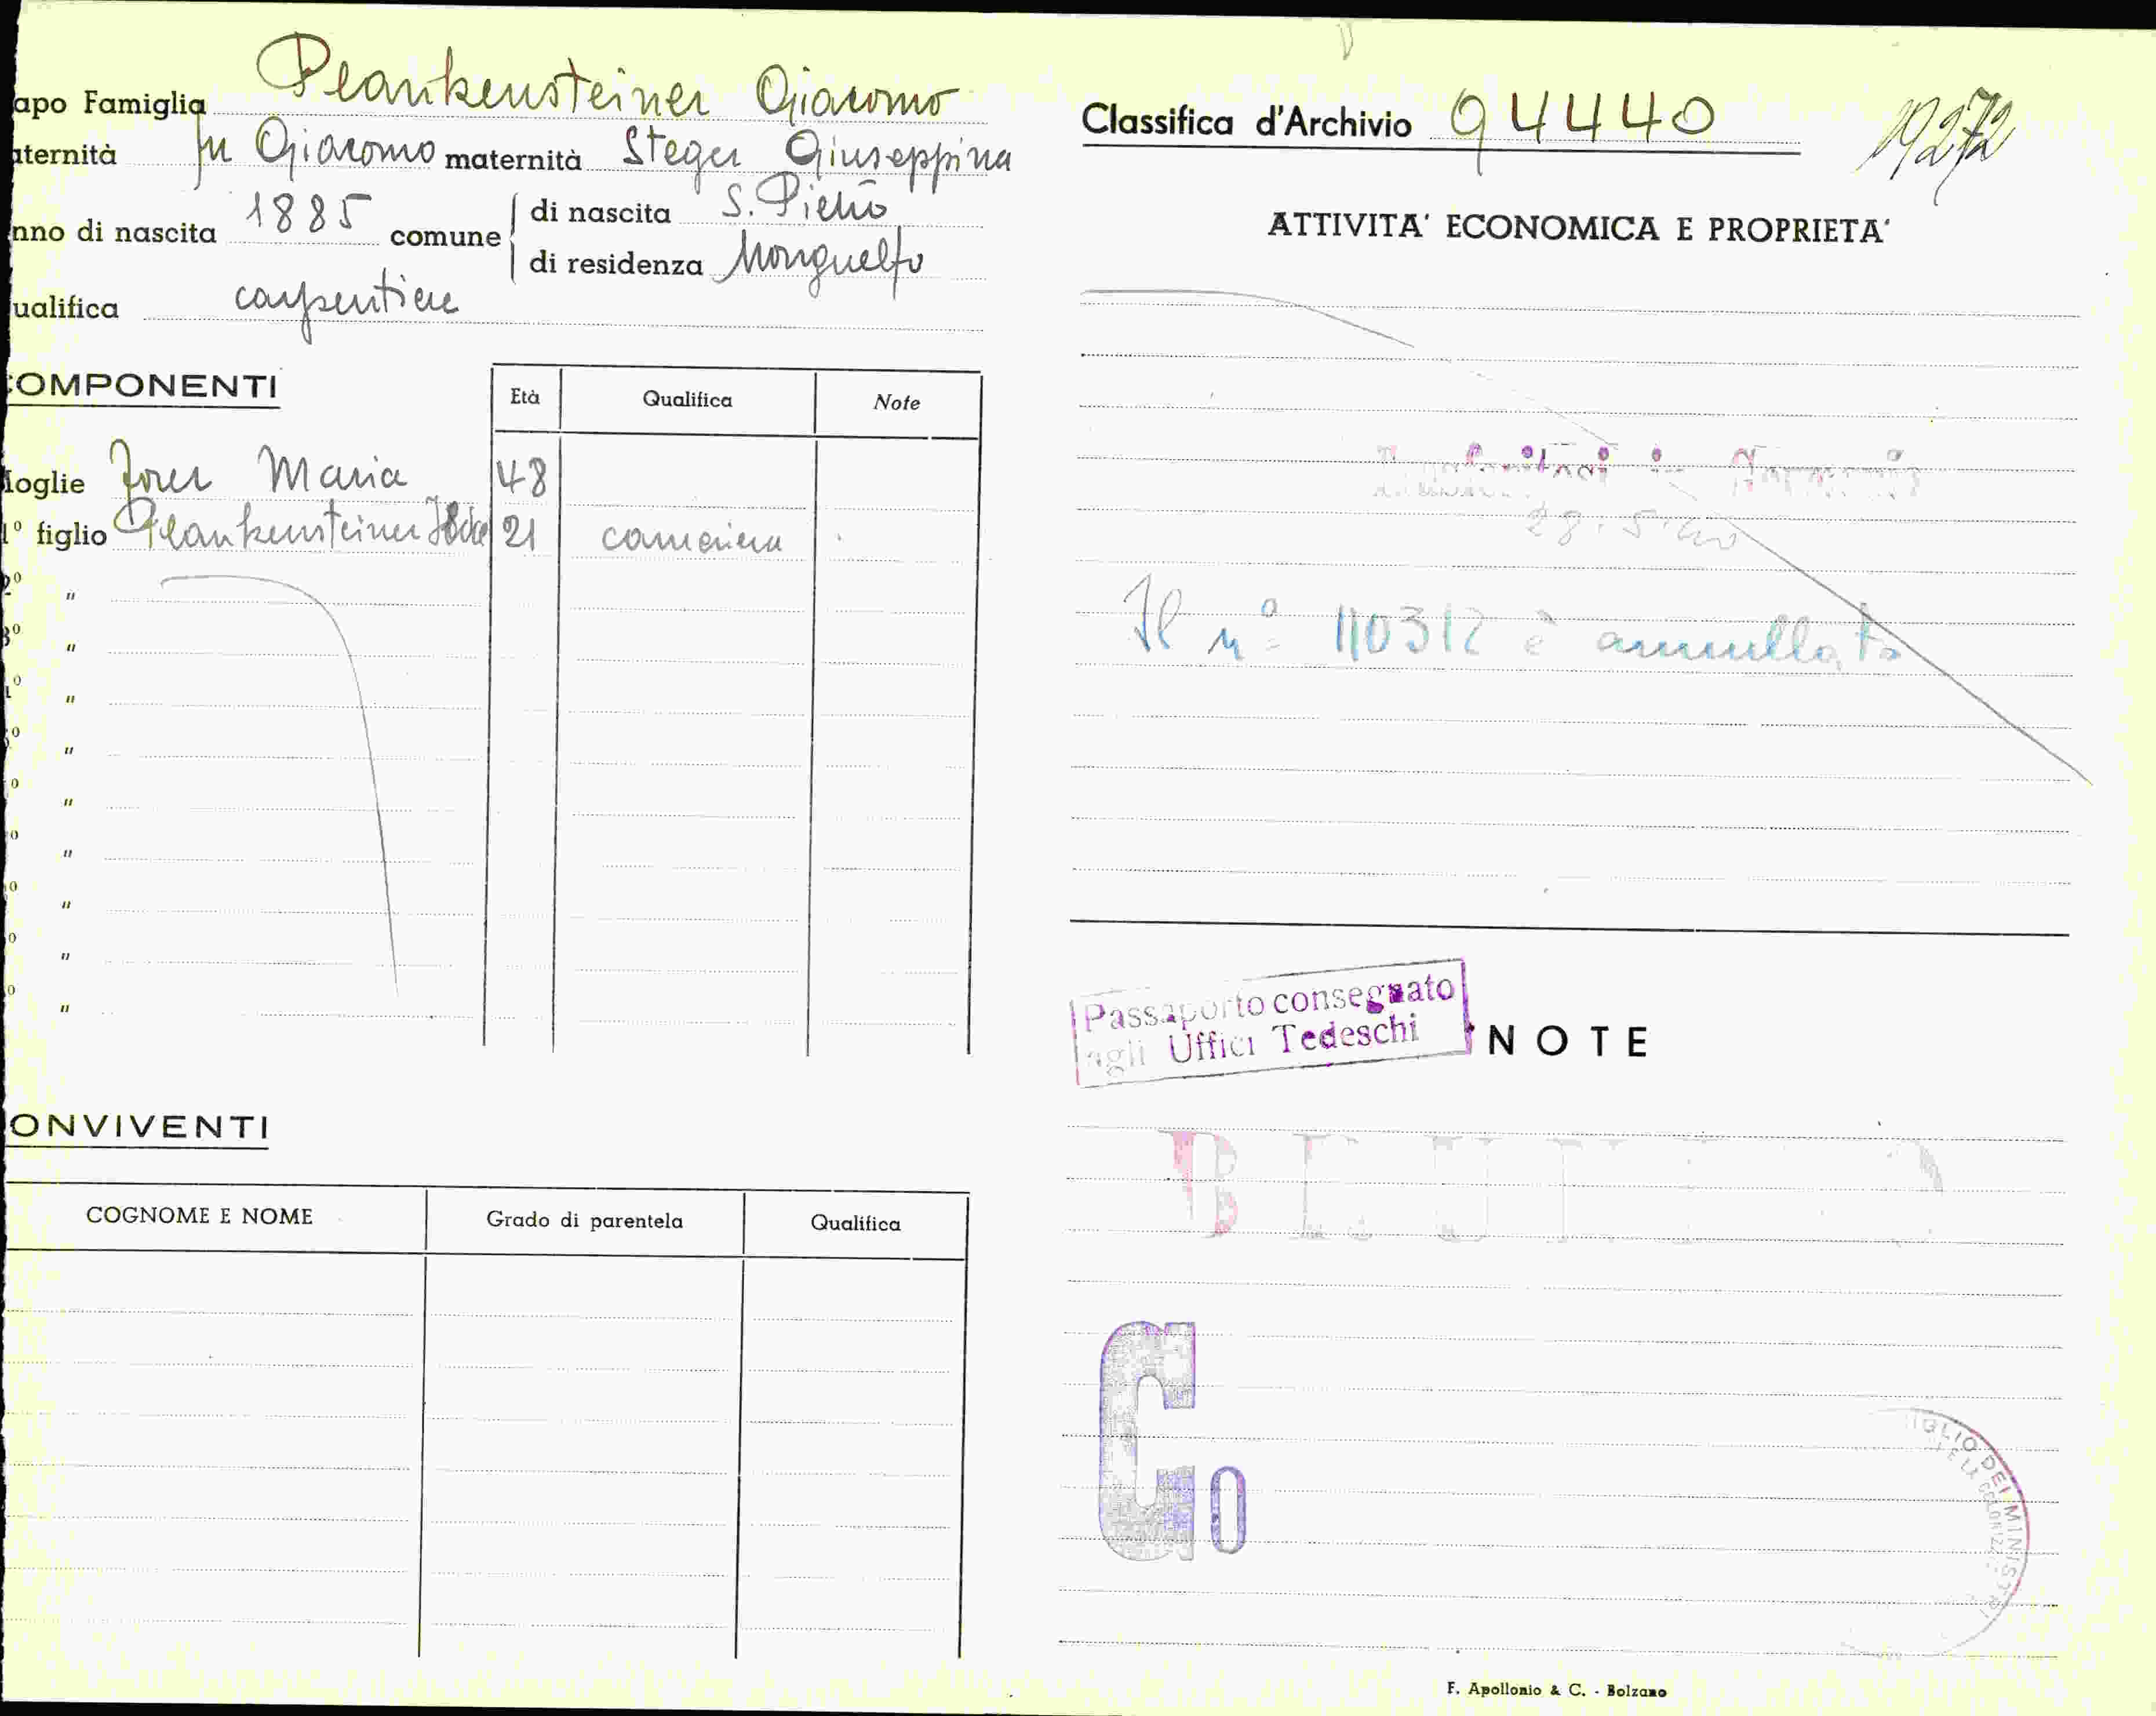 apo Famiglia Plankensteiner Giacomo
aternità fu Giacomo maternità Steger Giuseppina
nno di nascita 1885 comune di nascita S. Pietro
di residenza Monguelfo
ualifica carpentiere
COMPONENTI
Età Qualifica Note
Moglie Maria 48
1° figlio Plankensteiner 21 cameriera
2° "
3° "
"
"
"
"
"
"
"
ONVIVENTI
COGNOME E NOME Grado di parentela Qualifica
Classifica d'Archivio 94440
19272
ATTIVITA' ECONOMICA E PROPRIETA'
28.5.40
Il n° 110312 è annullato
Passaporto consegnato
agli Uffici Tedeschi
NOTE
G0
IGLIO DEI MINISTRI
F. Apollonio & C. - Bolzano